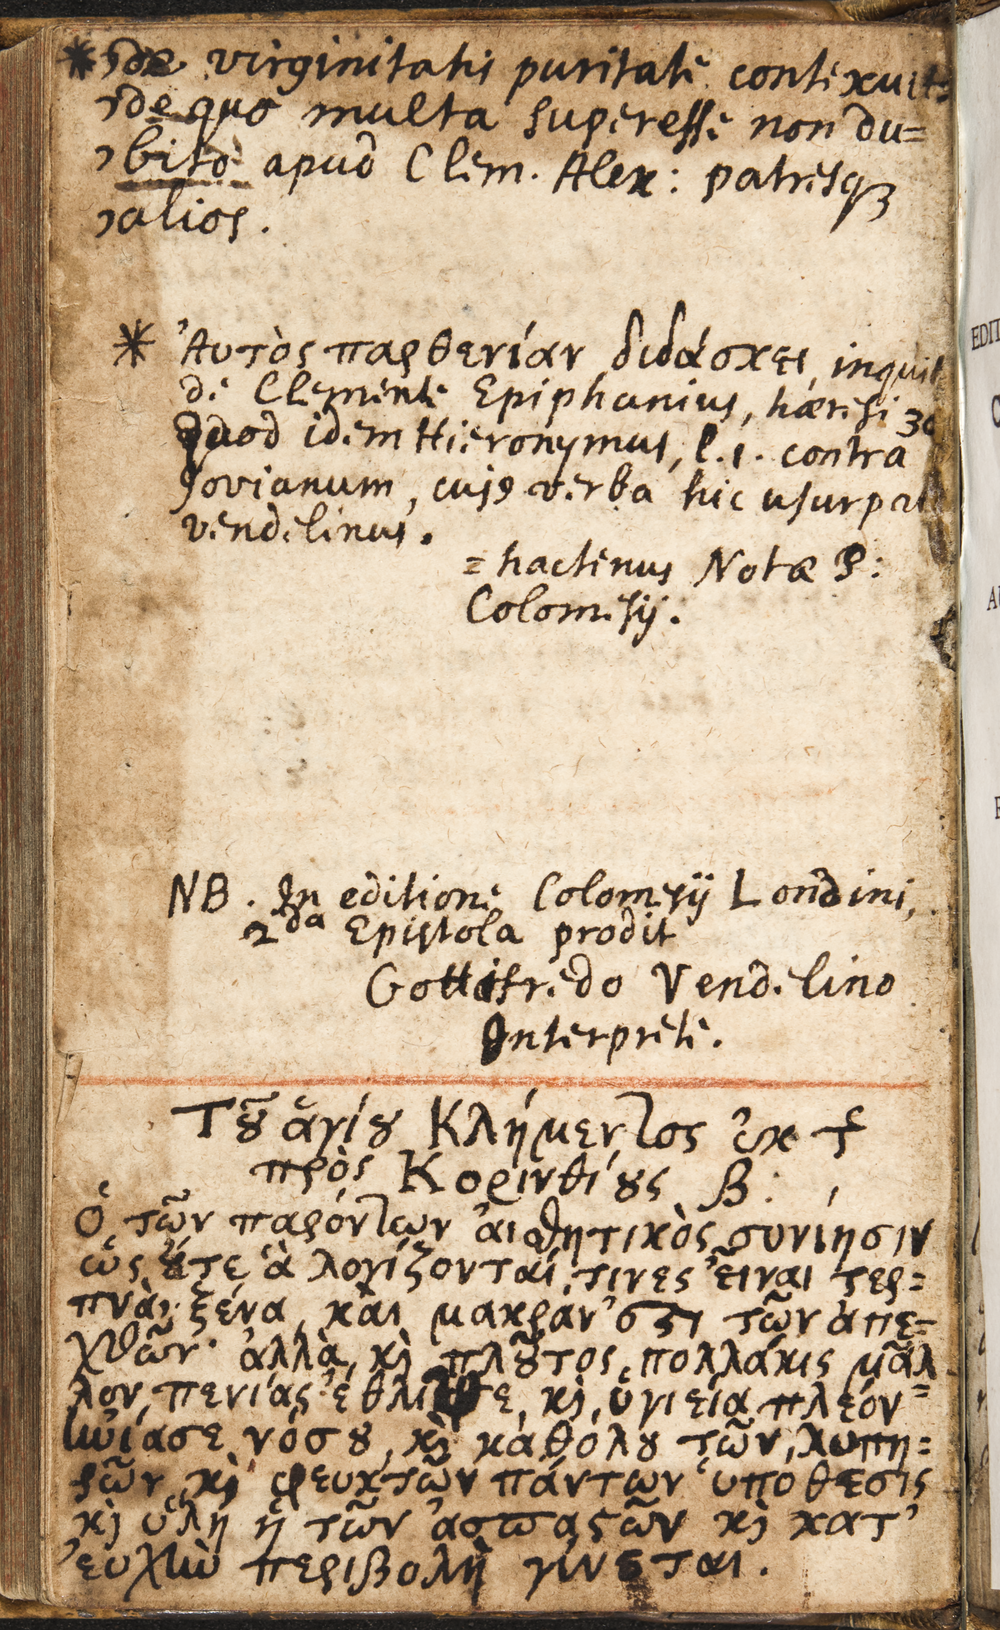 * de virginitatis puritate contexuit:
de quo multa superesse non du=
bito apud Clem. Alex: patresq3
alios.
* Ἀυτὸς παρθενίαν διδάσκει, inquit
de Clemente Epiphanius, hæresi 30
Quod idem Hieronymus, l. 1. contra
Jovianum, cuj9 verba hic usurpat
vendelinus.
= hactenus Notæ P:
Colomesij.
NB. In editione Colomesij Londini,
2da Epistola prodit
Gottifredo Vendelino
Interprete.
Τȣ͂ ἁγίȣ Κλήμεντος ἐκ τ͂
πρὸς Κορινθίȣς β:
Ὁ τῶν παρόντων ἀισθητικὸς συνίησιν
ὡς ὄυτε ἃ λογίζονταί τινες εἶναι τερ=
πνὰ, ξένα, κὰι μακράν ἐστι τῶν ἀπε=
χθῶν· ἀλλὰ, κὶ πλȣ͂τος πολλάκις μᾶλ
λον πενίας ἔθλιψε, κὶ ὑγιεία πλέον=
ἠνίασε νόσȣ, κὶ καθόλȣ τῶν λυπη=
ρῶν κὶ φευκτῶν πάντων ὑπόθεσις
κὶ ὕλη ἡ τῶν ἀσπαστῶν κὶ κατ'
ἐυχὴν περιβολὴ γίνεται.